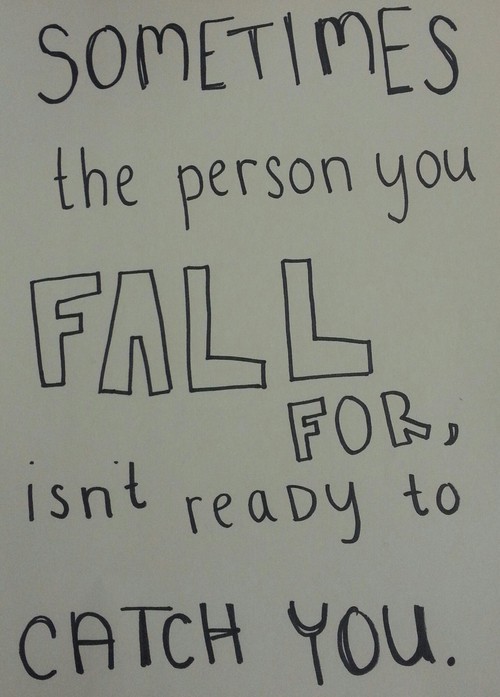 SOMETIMES
the person you
FALL
FOR,
isn't ready to
CATCH YOU.